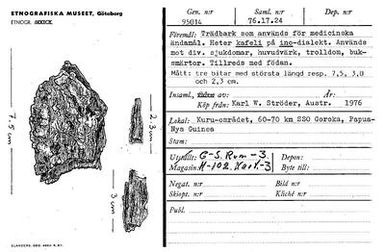 ETNOGRAFISKA MUSEET, Göteborg
ETNOGR.
7,5 cm
2,3 cm
3 cm
Gen. nr
95014
Saml. nr
76.17.24
Dep. nr
Föremål: Trädbark som används för medicinska
ändamål. Heter kafeli på ino-dialekt. Används
mot div. sjukdomar, huvudvärk, trolldom, buk-
smärtor. Tillreds med födan.
Mått: tre bitar med största längd resp. 7,5, 3,0
och 2,3 cm.
Insaml.,
År:
Köp från: Karl W. Ströder, Austr. 1976
Lokal: Yuru-området, 60-70 km SSO Goroka, Papua-
Nya Guinea
Stam:
Utställt: G-S. Rum-3
Depon:
Magasin: H-102. Kart.-3
Byte till:
Negat. nr
Bild nr
Skiopt. nr
Kliché nr
Publ.